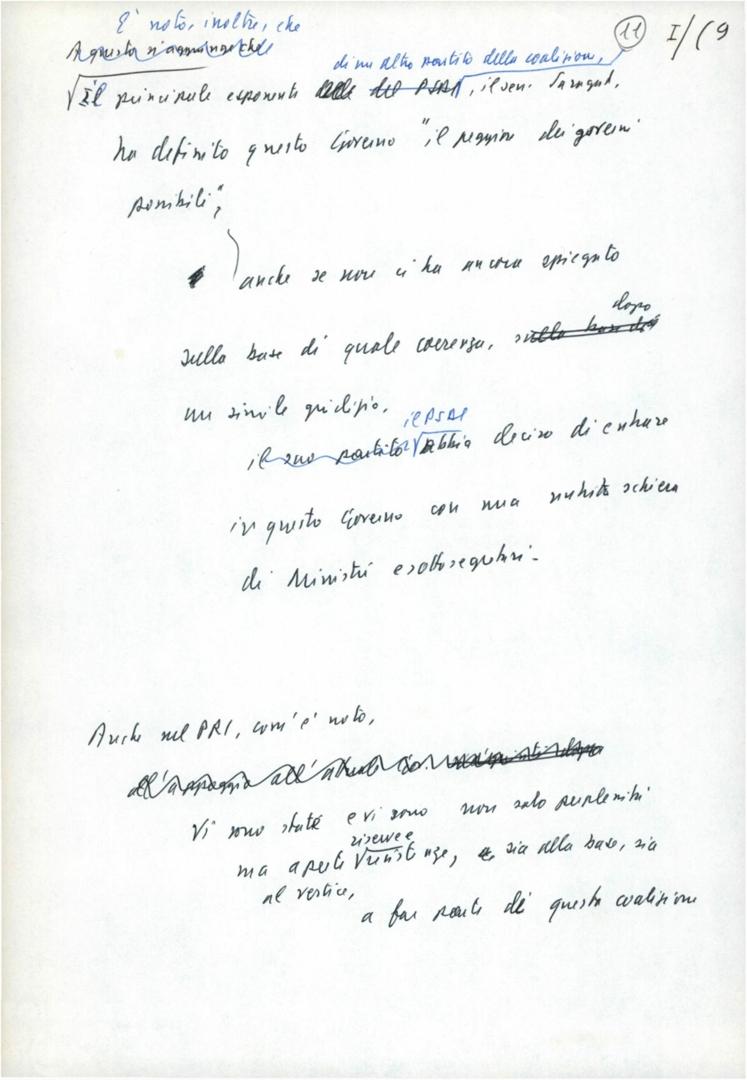 È noto, inoltre, che
11 I/19
A questo si aggiunge che
di un altro partito della coalizione,
Il principale esponente del PSDI, il sen. Saragat,
ha definito questo Governo "il peggiore dei governi
possibili",
anche se non ci ha ancora spiegato
dopo
sulla base di quale coerenza, sulla base di
un simile giudizio,
il PSDI
il suo partito abbia deciso di entrare
in questo Governo con una nutrita schiera
di Ministri e sottosegretari.
Anche nel PRI, com'è noto,
all'appoggio all'attuale
Vi sono state e vi sono non solo perplessità
riserve e
ma aperte resistenze, sia alla base, sia
al vertice,
a far parte di questa coalizione